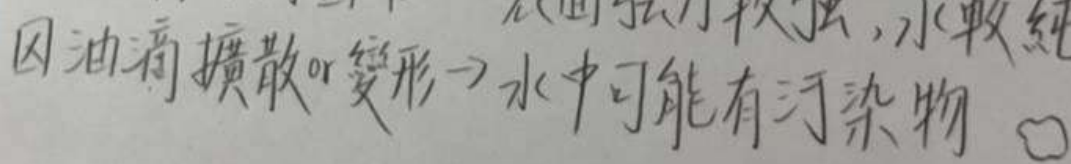 表面張力較強，水較純
因油滴擴散or變形→水中可能有污染物